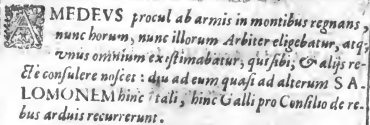 AMEDEVS procul ab armis in montibus regnans,
nunc horum, nunc illorum Arbiter eligebatur, atq;
vnus omnium existimabatur, qui sibi, & alijs re-
ctè consulere noscet: diu ad eum quasi ad alterum SA-
LOMONEM hinc Itali, hinc Galli pro Consilio de re-
bus arduis recurrerunt.